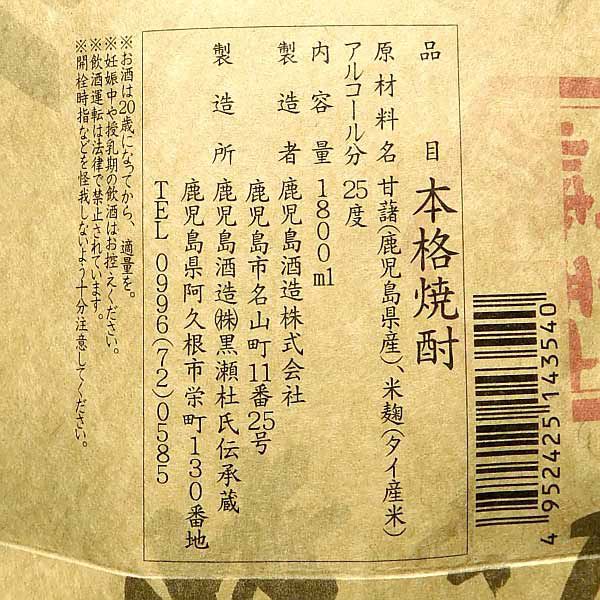 品目 本格焼酎
原材料名 甘藷(鹿児島県産)、米麹(タイ産米)
アルコール分 25度
内容量 1800ml
製造者 鹿児島酒造株式会社
鹿児島市名山町11番25号
製造所 鹿児島酒造㈱黒瀬杜氏伝承蔵
鹿児島県阿久根市栄町130番地
TEL 0996(72)0585
※お酒は20歳になってから、適量を。
※妊娠中や授乳期の飲酒はお控えください。
※飲酒運転は法律で禁止されています。
※開栓時指などを怪我しないよう十分注意してください。
4952425143540